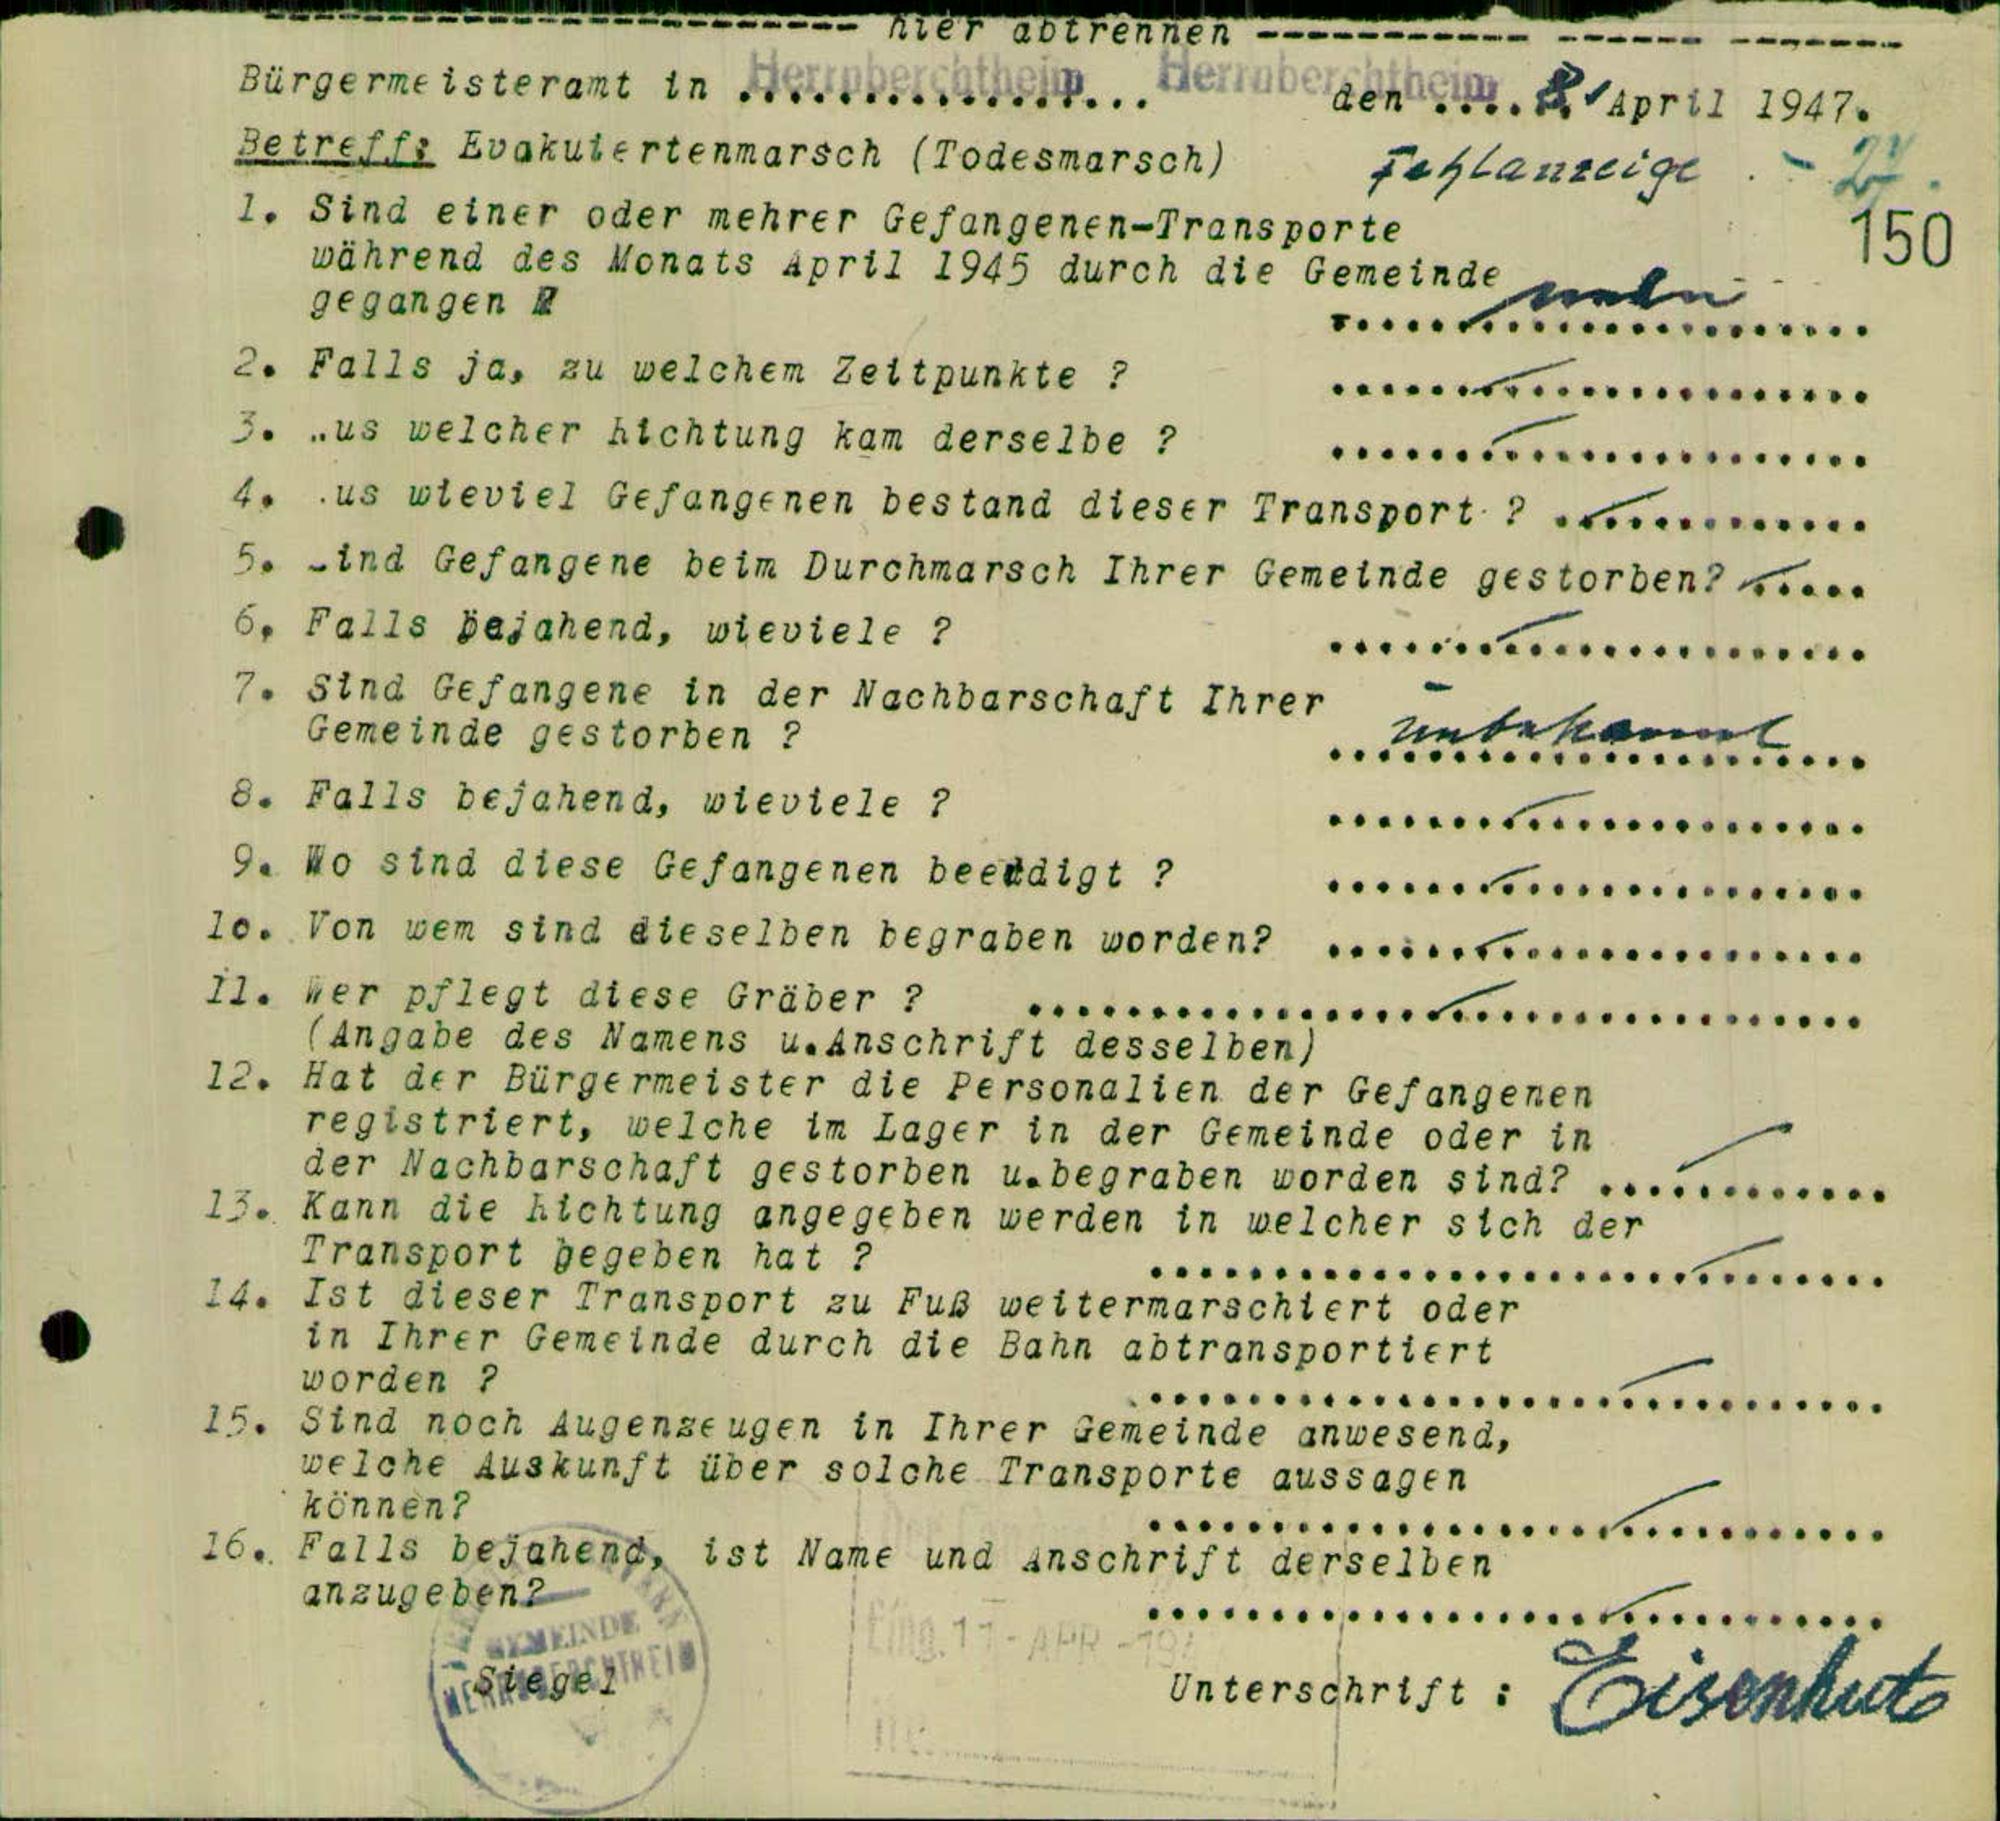 hier abtrennen
Bürgermeisteramt in Herrnberchtheim Herrnberchtheim den 8. April 1947.
Betreff: Evakuiertenmarsch (Todesmarsch) Fehlanzeige
150
1. Sind einer oder mehrer Gefangenen-Transporte
während des Monats April 1945 durch die Gemeinde
gegangen ?
2. Falls ja, zu welchem Zeitpunkte ?
3. Aus welcher Richtung kam derselbe ?
4. Aus wieviel Gefangenen bestand dieser Transport ?
5. Sind Gefangene beim Durchmarsch Ihrer Gemeinde gestorben?
6. Falls bejahend, wieviele ?
7. Sind Gefangene in der Nachbarschaft Ihrer
Gemeinde gestorben ? unbekannt
8. Falls bejahend, wieviele ?
9. Wo sind diese Gefangenen beerdigt ?
10. Von wem sind dieselben begraben worden?
11. Wer pflegt diese Gräber ?
(Angabe des Namens u.Anschrift desselben)
12. Hat der Bürgermeister die Personalien der Gefangenen
registriert, welche im Lager in der Gemeinde oder in
der Nachbarschaft gestorben u.begraben worden sind?
13. Kann die Richtung angegeben werden in welcher sich der
Transport begeben hat ?
14. Ist dieser Transport zu Fuß weitermarschiert oder
in Ihrer Gemeinde durch die Bahn abtransportiert
worden ?
15. Sind noch Augenzeugen in Ihrer Gemeinde anwesend,
welche Auskunft über solche Transporte aussagen
können?
16. Falls bejahend, ist Name und Anschrift derselben
anzugeben?
GEMEINDE
HERRNBERCHTHEIM
Siegel
Eing. 11-APR-194
Unterschrift : Eisenhut